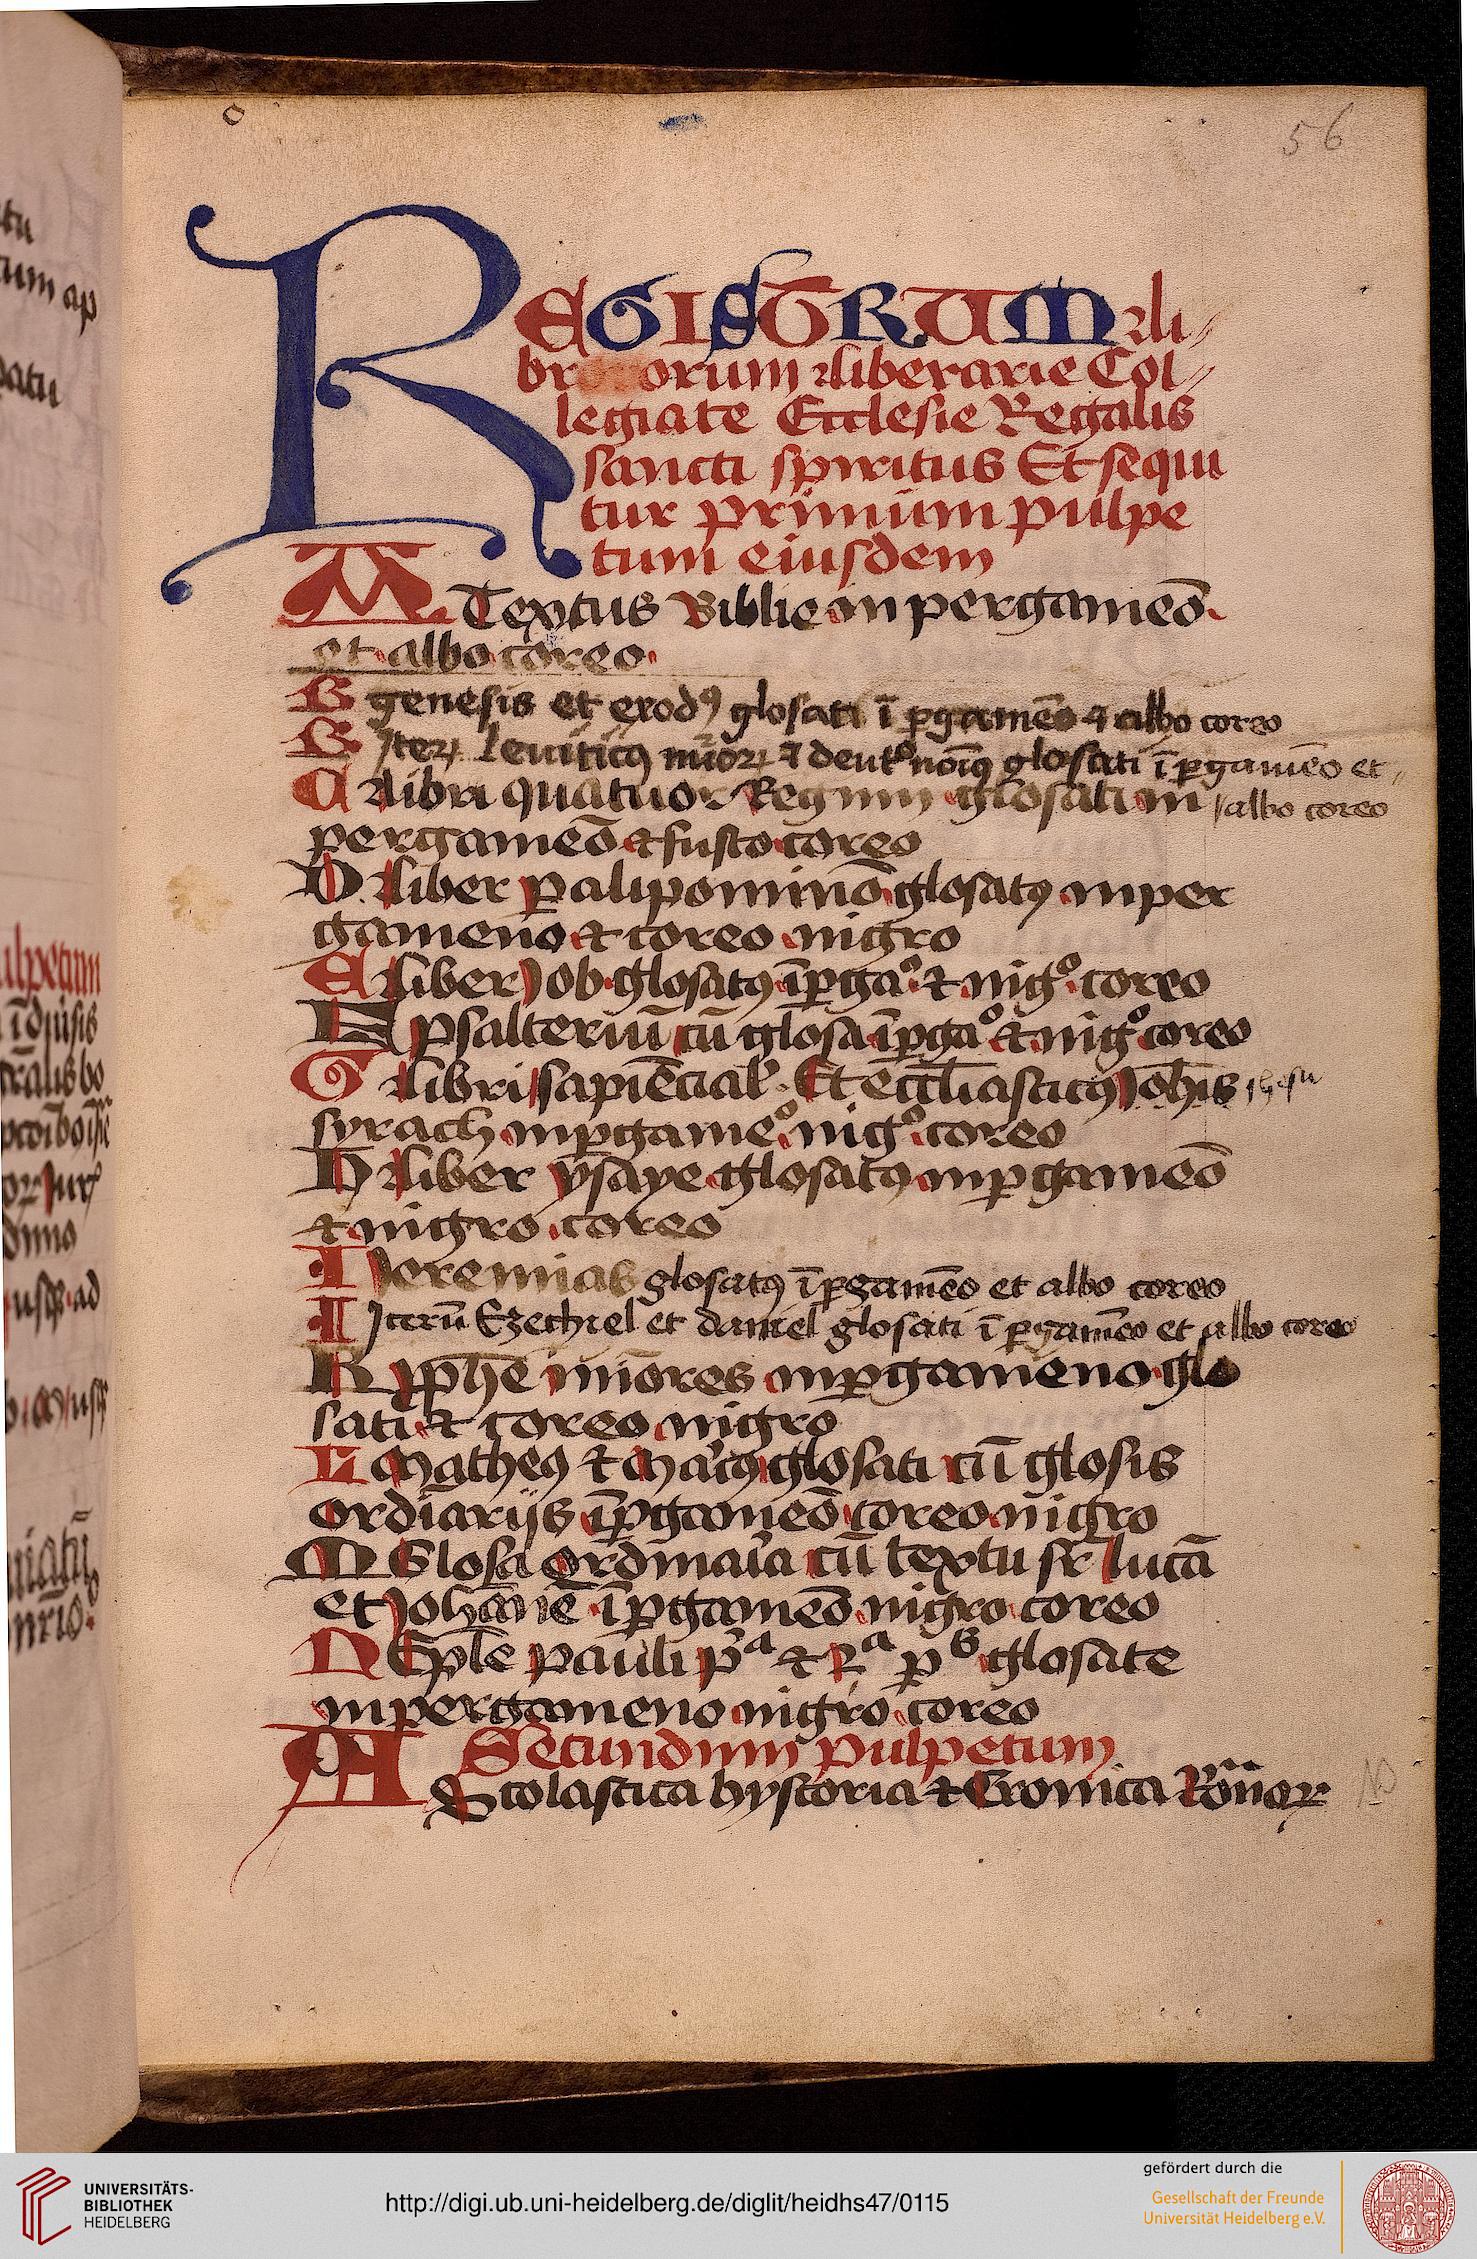 56
REGISTRUM li
brorum liberarie Col
legiate Ecclesie Regalis
sancti spiritus Et sequi
tur primum pulpe
tum eiusdem
A Textus Biblie in pergameō
et albo coreo
B genesis et exodꝰ glosati ī ꝑgamēo ⁊ albo coreo
B Iteꝝ leuiticꝰ nūoꝝ ⁊ deutᵒnoīꝰ glosati ī ꝑgamēo et
C libri quatuor Regum glosati in albo coreo
pergameō ⁊ fusco coreo
D liber paralipominō glosatꝰ in per
gameno ⁊ coreo nigro
E liber Job glosatꝰ ī ꝑgaᵒ ⁊ nigᵒ coreo
F psalteriū cū glosa ī ꝑgaᵒ ⁊ nigᵒ coreo
G libri sapiēcial Et eccl̄iasticꝰ Joh̄is ihesu
syrach in ꝑgameᵒ nigᵒ coreo
H liber ysaye glosatꝰ in ꝑgameō
⁊ nigro coreo
I Jeremias glosatꝰ ī ꝑgamēo et albo coreo
I Iterū Ezechiel et daniel glosati ī ꝑgamēo et albo coreo
K ꝓphe minores in ꝑgameno glo
sati ⁊ coreo nigro
L Matheꝰ ⁊ Marcꝰ glosati cū glosis
ordiariis ī ꝑgameō coreo nigro
M Glosa ordinaria cū textu sr lucā
et Johānē ī ꝑgameō nigro coreo
N Ep̄le pauli pᵃ ⁊ 2ᵃ glosate
in pergameno nigro coreo
Secundum pulpetum
A Scolastica hystoria ⁊ Cronica Romoꝝ
UNIVERSITÄTS-
BIBLIOTHEK
HEIDELBERG
http://digi.ub.uni-heidelberg.de/diglit/heidhs47/0115
gefördert durch die
Gesellschaft der Freunde
Universität Heidelberg e.V.